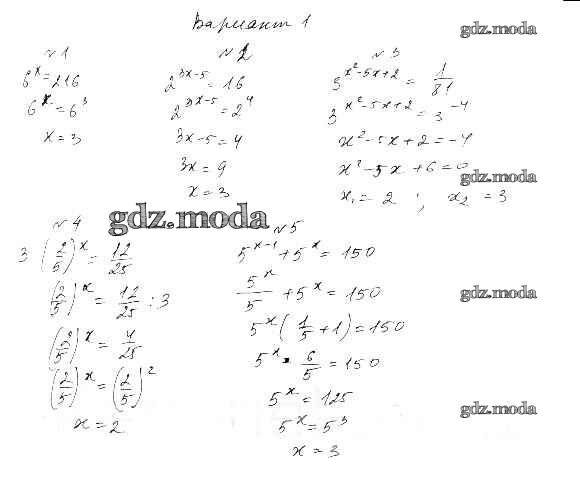 Вариант 1
gdz.moda
№1
6^x = 216
6^x = 6^3
x = 3
№2
2^{3x-5} = 16
2^{3x-5} = 2^4
3x-5 = 4
3x = 9
x = 3
№3
3^{x²-5x+2} = 1/81
3^{x²-5x+2} = 3^{-4}
x²-5x+2 = -4
x²-5x+6 = 0
gdz.moda
x₁ = 2 ; x₂ = 3
gdz.moda
№4
3 (2/5)^x = 12/25
(2/5)^x = 12/25 : 3
(2/5)^x = 4/25
(2/5)^x = (2/5)^2
x = 2
№5
5^{x-1} + 5^x = 150
5^x/5 + 5^x = 150
gdz.moda
5^x (1/5 + 1) = 150
5^x · 6/5 = 150
5^x = 125
gdz.moda
5^x = 5^3
x = 3